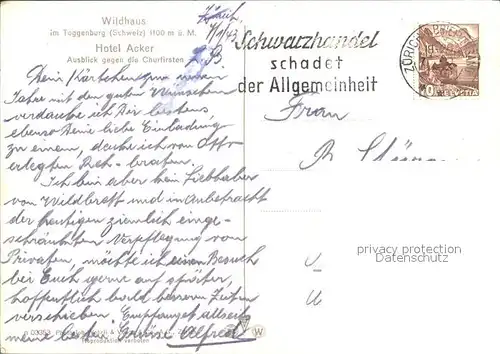 Wildhaus
im Toggenburg (Schweiz) 1100 m ü. M.
Hotel Acker
Ausblick gegen die Churfirsten
Zürich,
7/1/43
Schwarzhandel
schadet
der Allgemeinheit
ZÜRICH
10 HELVETIA
Dein Kärtchen vom neuen
Jahre mit den guten Wünschen
verdanke ich Dir bestens
ebenso Deine liebe Einladung
zu einem, denke ich von Otto
erlegten Reh-braten.
Ich bin aber kein Liebhaber
von Wildbrett und in Anbetracht
der heutigen ziemlich einge-
schränkten Verpflegung von
Privaten, möchte ich einen Besuch
bei Euch gerne auf später,
hoffentlich bald bessere Zeiten
verschieben. Empfanget allseit
meine besten Grüsse Alfred
Frau
M.
Reproduktion verboten
W
privacy protection
Datenschutz